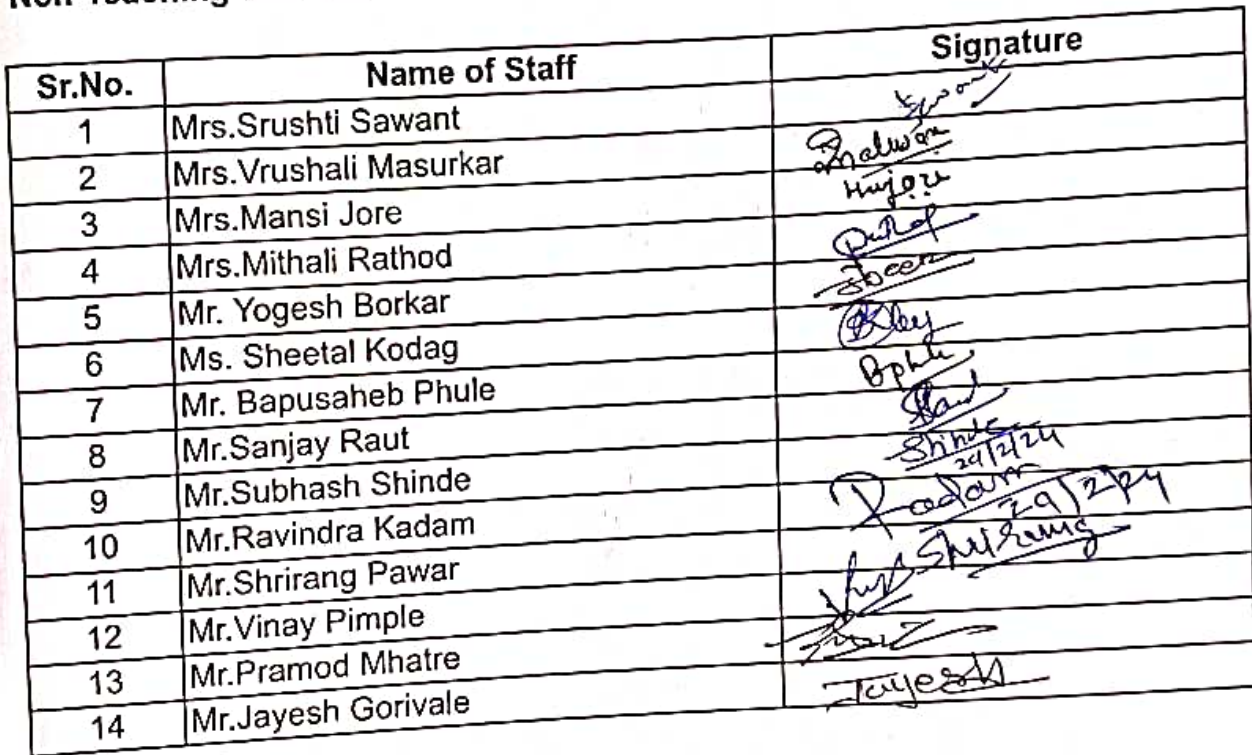 Non Teaching
Sr.No. Name of Staff Signature
1 Mrs.Srushti Sawant
2 Mrs.Vrushali Masurkar
3 Mrs.Mansi Jore
4 Mrs.Mithali Rathod
5 Mr. Yogesh Borkar
6 Ms. Sheetal Kodag
7 Mr. Bapusaheb Phule
8 Mr.Sanjay Raut
9 Mr.Subhash Shinde Shinde 29/2/24
10 Mr.Ravindra Kadam Kadam 29/2/24
11 Mr.Shrirang Pawar Shrirang
12 Mr.Vinay Pimple
13 Mr.Pramod Mhatre
14 Mr.Jayesh Gorivale Jayesh